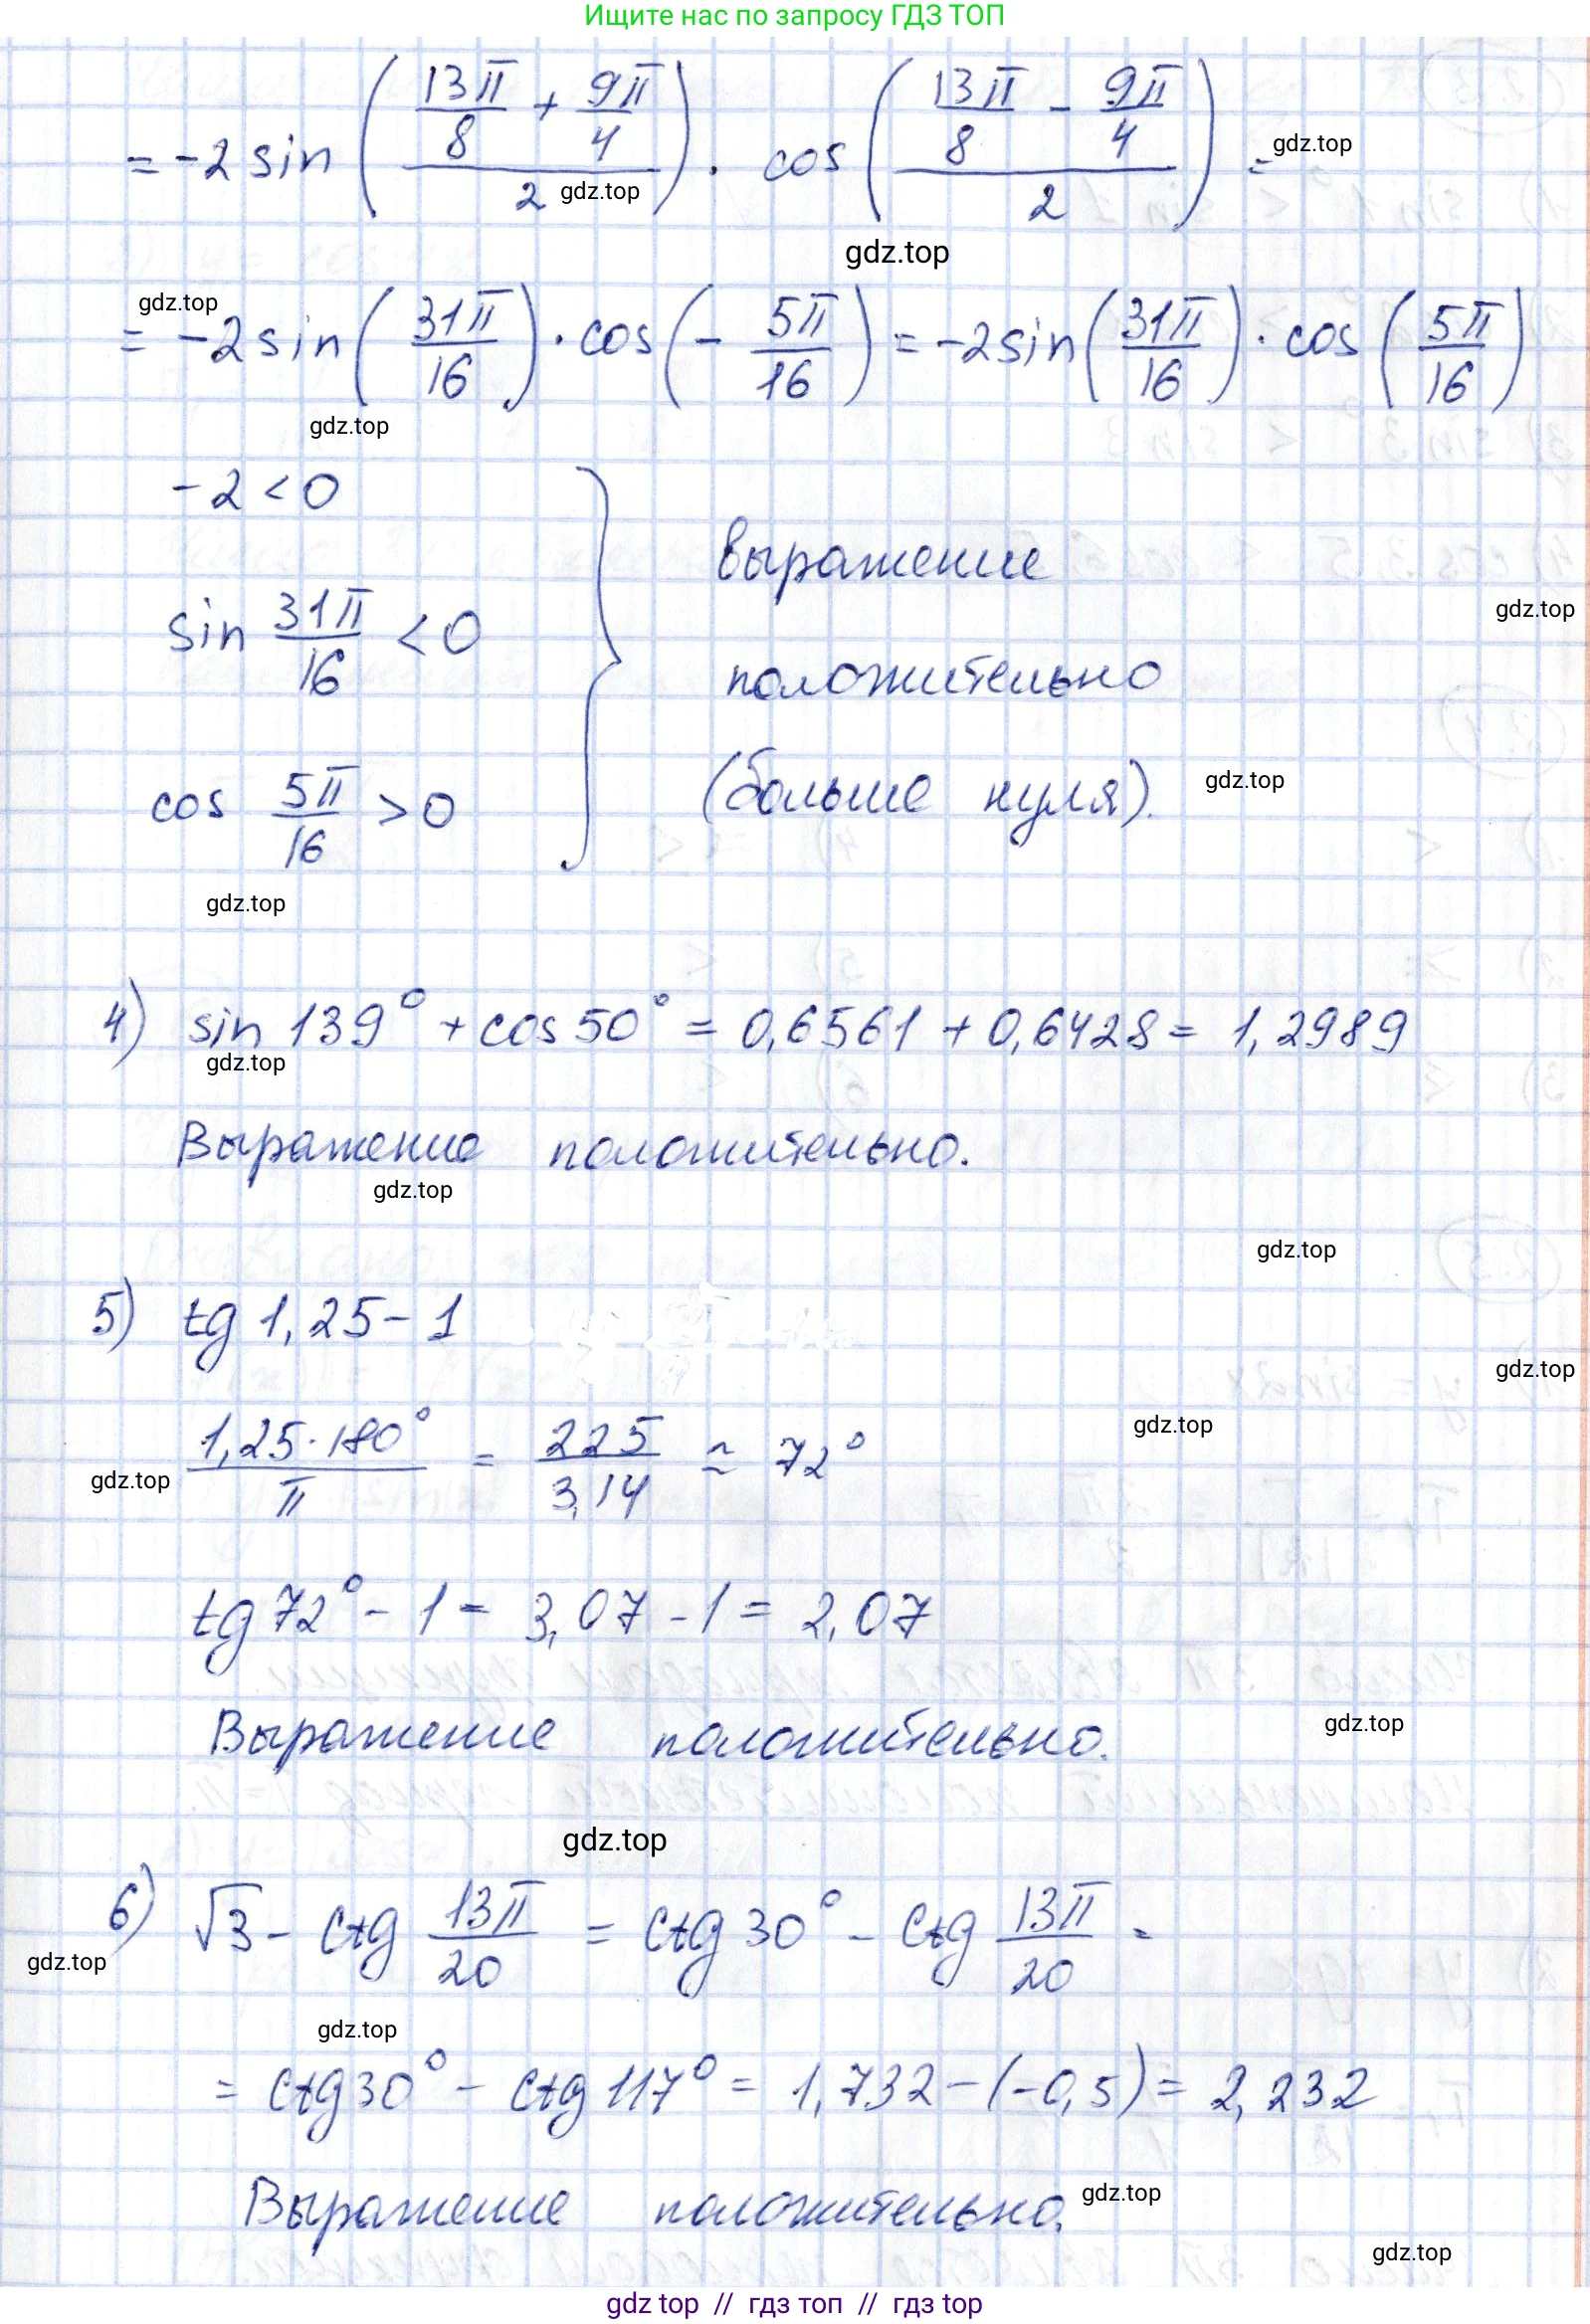 Ищите нас по запросу ГДЗ ТОП
= -2 sin ((13π/8 + 9π/4)/2) · cos ((13π/8 - 9π/4)/2) =
gdz.top
gdz.top
gdz.top
gdz.top
= -2 sin (31π/16) · cos (- 5π/16) = -2 sin (31π/16) · cos (5π/16)
gdz.top
-2 < 0
выражение
sin 31π/16 < 0
gdz.top
положительно
cos 5π/16 > 0
(больше нуля).
gdz.top
gdz.top
4) sin 139° + cos 50° = 0,6561 + 0,6428 = 1,2989
gdz.top
Выражение положительно.
gdz.top
gdz.top
5) tg 1,25 - 1
gdz.top
1,25·180°/π = 225/3,14 ≃ 72°
gdz.top
gdz.top
tg 72° - 1 = 3,07 - 1 = 2,07
Выражение положительно.
gdz.top
gdz.top
6) √3 - ctg 13π/20 = ctg 30° - ctg 13π/20 =
gdz.top
gdz.top
= ctg 30° - ctg 117° = 1,732 - (-0,5) = 2,232
Выражение положительно.
gdz.top
gdz.top
gdz top // гдз топ // гдз top